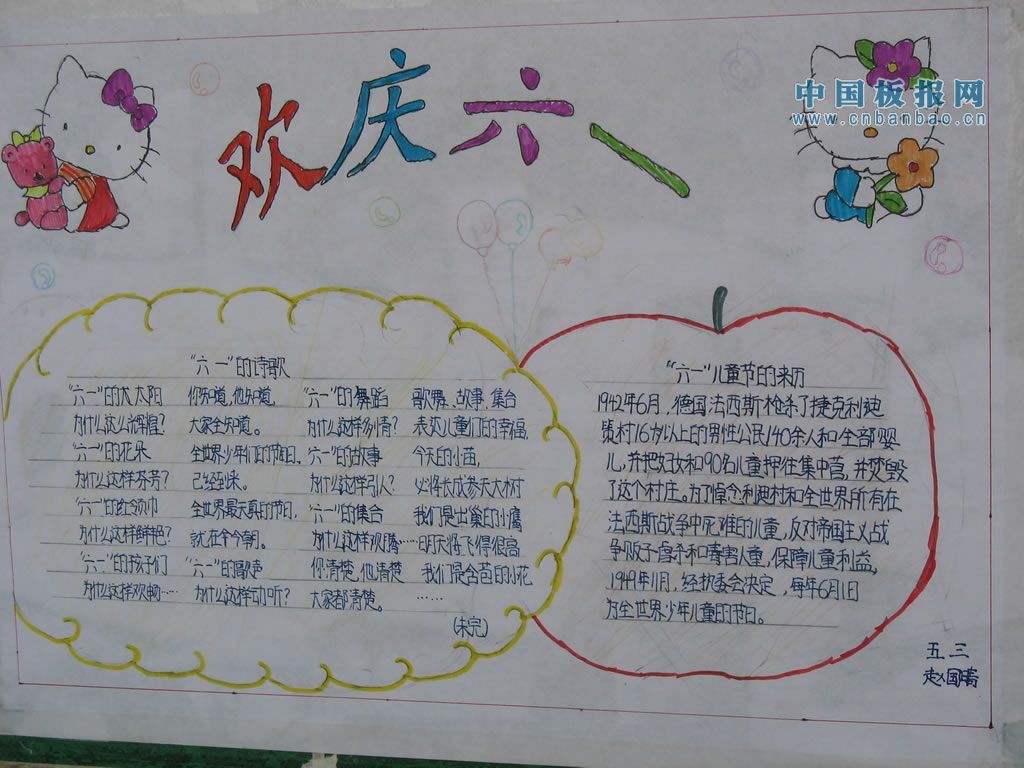 欢庆六一
中国板报网
www.cnbanbao.cn
"六一"的诗歌
"六一"的大太阳
为什么这么辉煌?
"六一"的花朵
为什么这样芬芳?
"六一"的红领巾
为什么这样鲜艳?
"六一"的孩子们
为什么这样欢畅……
你知道,他知道,
大家全知道。
全世界少年们的节日,
已经到来。
全世界最天真的节日,
就在今朝。
"六一"的
为什么这样动听?
"六一"的舞蹈
为什么这样多情?
"六一"的故事
为什么这样引人?
"六一"的集合
为什么这样欢腾……
你清楚,他清楚
大家都清楚。
歌舞、故事、集合
表达儿童们的幸福,
今天的小苗,
必将长成参天大树
我们是出巢的小鹰
明天将飞得很高
我们是含苞的小花
……
(未完)
"六一"儿童节的来历
1942年6月,德国法西斯枪杀了捷克利迪
策村16岁以上的男性公民140余人和全部婴
儿,并把妇女和90名儿童押往集中营,并焚毁
了这个村庄。为了悼念利迪村和全世界所有在
法西斯战争中死难的儿童,反对帝国主义战
争贩子虐杀和毒害儿童,保障儿童利益,
1949年11月,经执委会决定,每年6月1日
为全世界少年儿童的节日。
五三
赵国晴